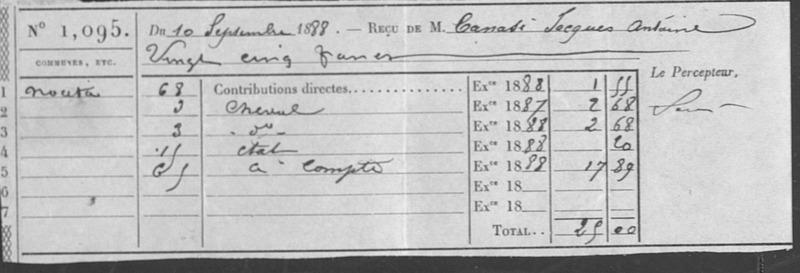 N° 1,095. Du 10 Septembre 1888. — Reçu de M. Canasi Jacques Antoine
Vingt cinq francs
COMMUNES, ETC.
Le Percepteur,
1 68 Contributions directes............... Exce 1888 1 55
2 3 Cheval Exce 1887 2 68
3 3 do Exce 1888 2 68
4 état Exce 1888 20
5 65 à compte Exce 1888 17 89
6 Exce 18
7 Exce 18
Total.. 25 00